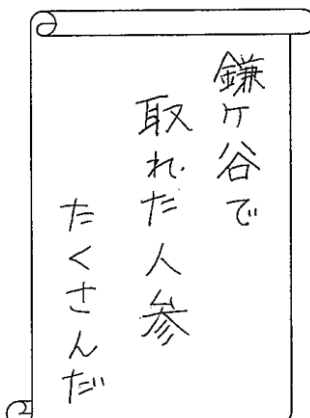 鎌ケ谷で
取れた人参
たくさんだ